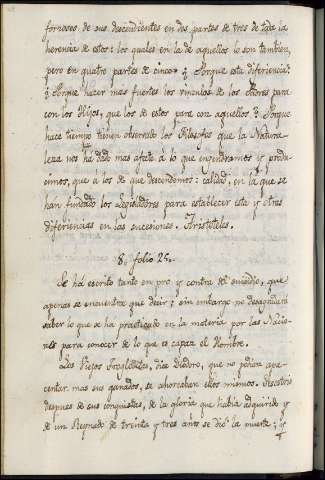 forzosos de sus descendientes en dos partes de tres de toda la
herencia de estos: los quales en la de aquellos lo son tambien,
pero en quatro partes de cinco. ¿ Porque esta diferiencia?
¿ Porque hacer mas fuertes los vinculos de los Padres para
con los Hijos, que los de estos para con aquellos? Porque
hace tiempo tienen observado los Filosofos que la Natura-
leza nos ha dado mas afecto á lo que engendramos y produ-
cimos, que á los de que descendemos: calidad, en la que se
han fundado los Legisladores para establecer esta y otras
diferiencias en las sucesiones. Aristoteles.
8. folio 25.
Se há escrito tanto en pro y contra del suicidio, que
apenas se encuentra que decir; sin embargo no desagradará
saber lo que se ha practicado en la materia por las Nacio-
nes para conocer de lo que es capaz el Hombre.
Los Viejos Trogloditas, dice Diodoro, que no podian apa-
centar mas sus ganados, se ahorcaban ellos mismos. Sesostris
despues de sus conquistas, de la gloria que habia adquirido y
de un Reynado de treinta y tres años se dió la muerte; y